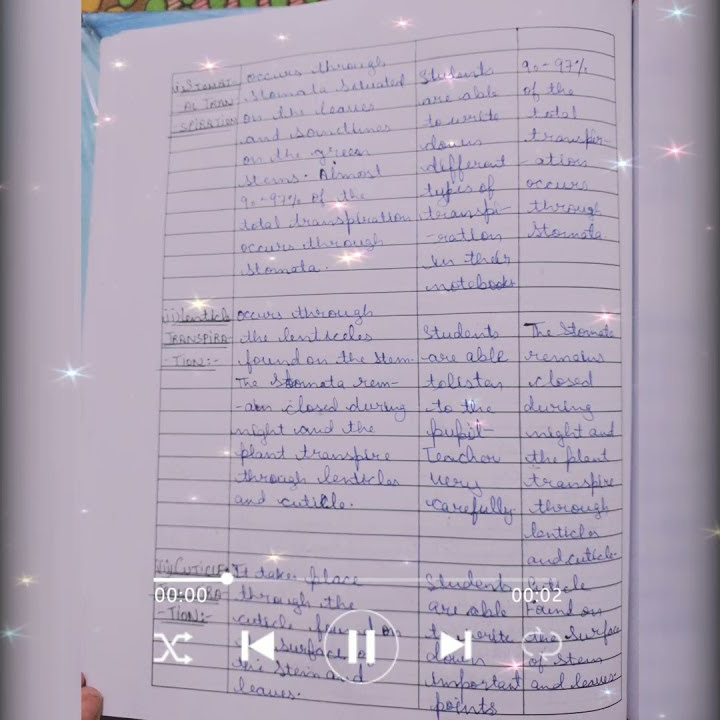 i) STOMAT-
AL TRAN-
SPIRATION
occurs through
stomata setuated
on the leaves
and sometimes
on the green
stems. Almost
90-97% of the
total transpiration
occurs through
stomata.
Students
are able
to write
down
different
types of
transpi-
-ration
in their
notebooks
90-97%
of the
total
transpir-
-ation
occurs
through
Stomata
ii) Lenticle
TRANSPIRA
-TION:-
occurs through
the lenticeles
found on the stem.
The stomata rem-
-ain closed during
night and the
plant transpire
through lenticles
and cuticle.
Students
are able
to listen
to the
pupil-
Teacher
very
carefully
The Stomate
remains
closed
during
night and
the plant
transpire
through
lenticles
and cuticle
iii) CUTICLE
-TION:-
It takes place
through the
cuticle
surface
the stem and
leaves.
Students
are able
to write
down
important
points
Cuticle
Found on
the surface
of stem
and leaves
00:00
00:02